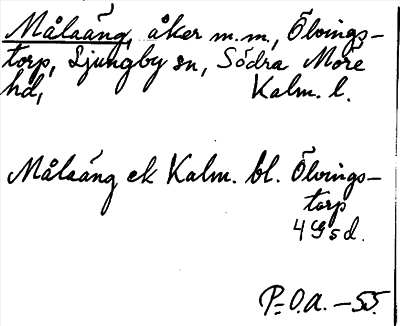 Målaäng, åker m.m, Ölvings-
torp, Ljungby sn, Södra Möre
hd, Kalm. l.
Målaäng ek Kalm. bl. Ölvings-
torp
4 Gsd.
P=O.A. -55.